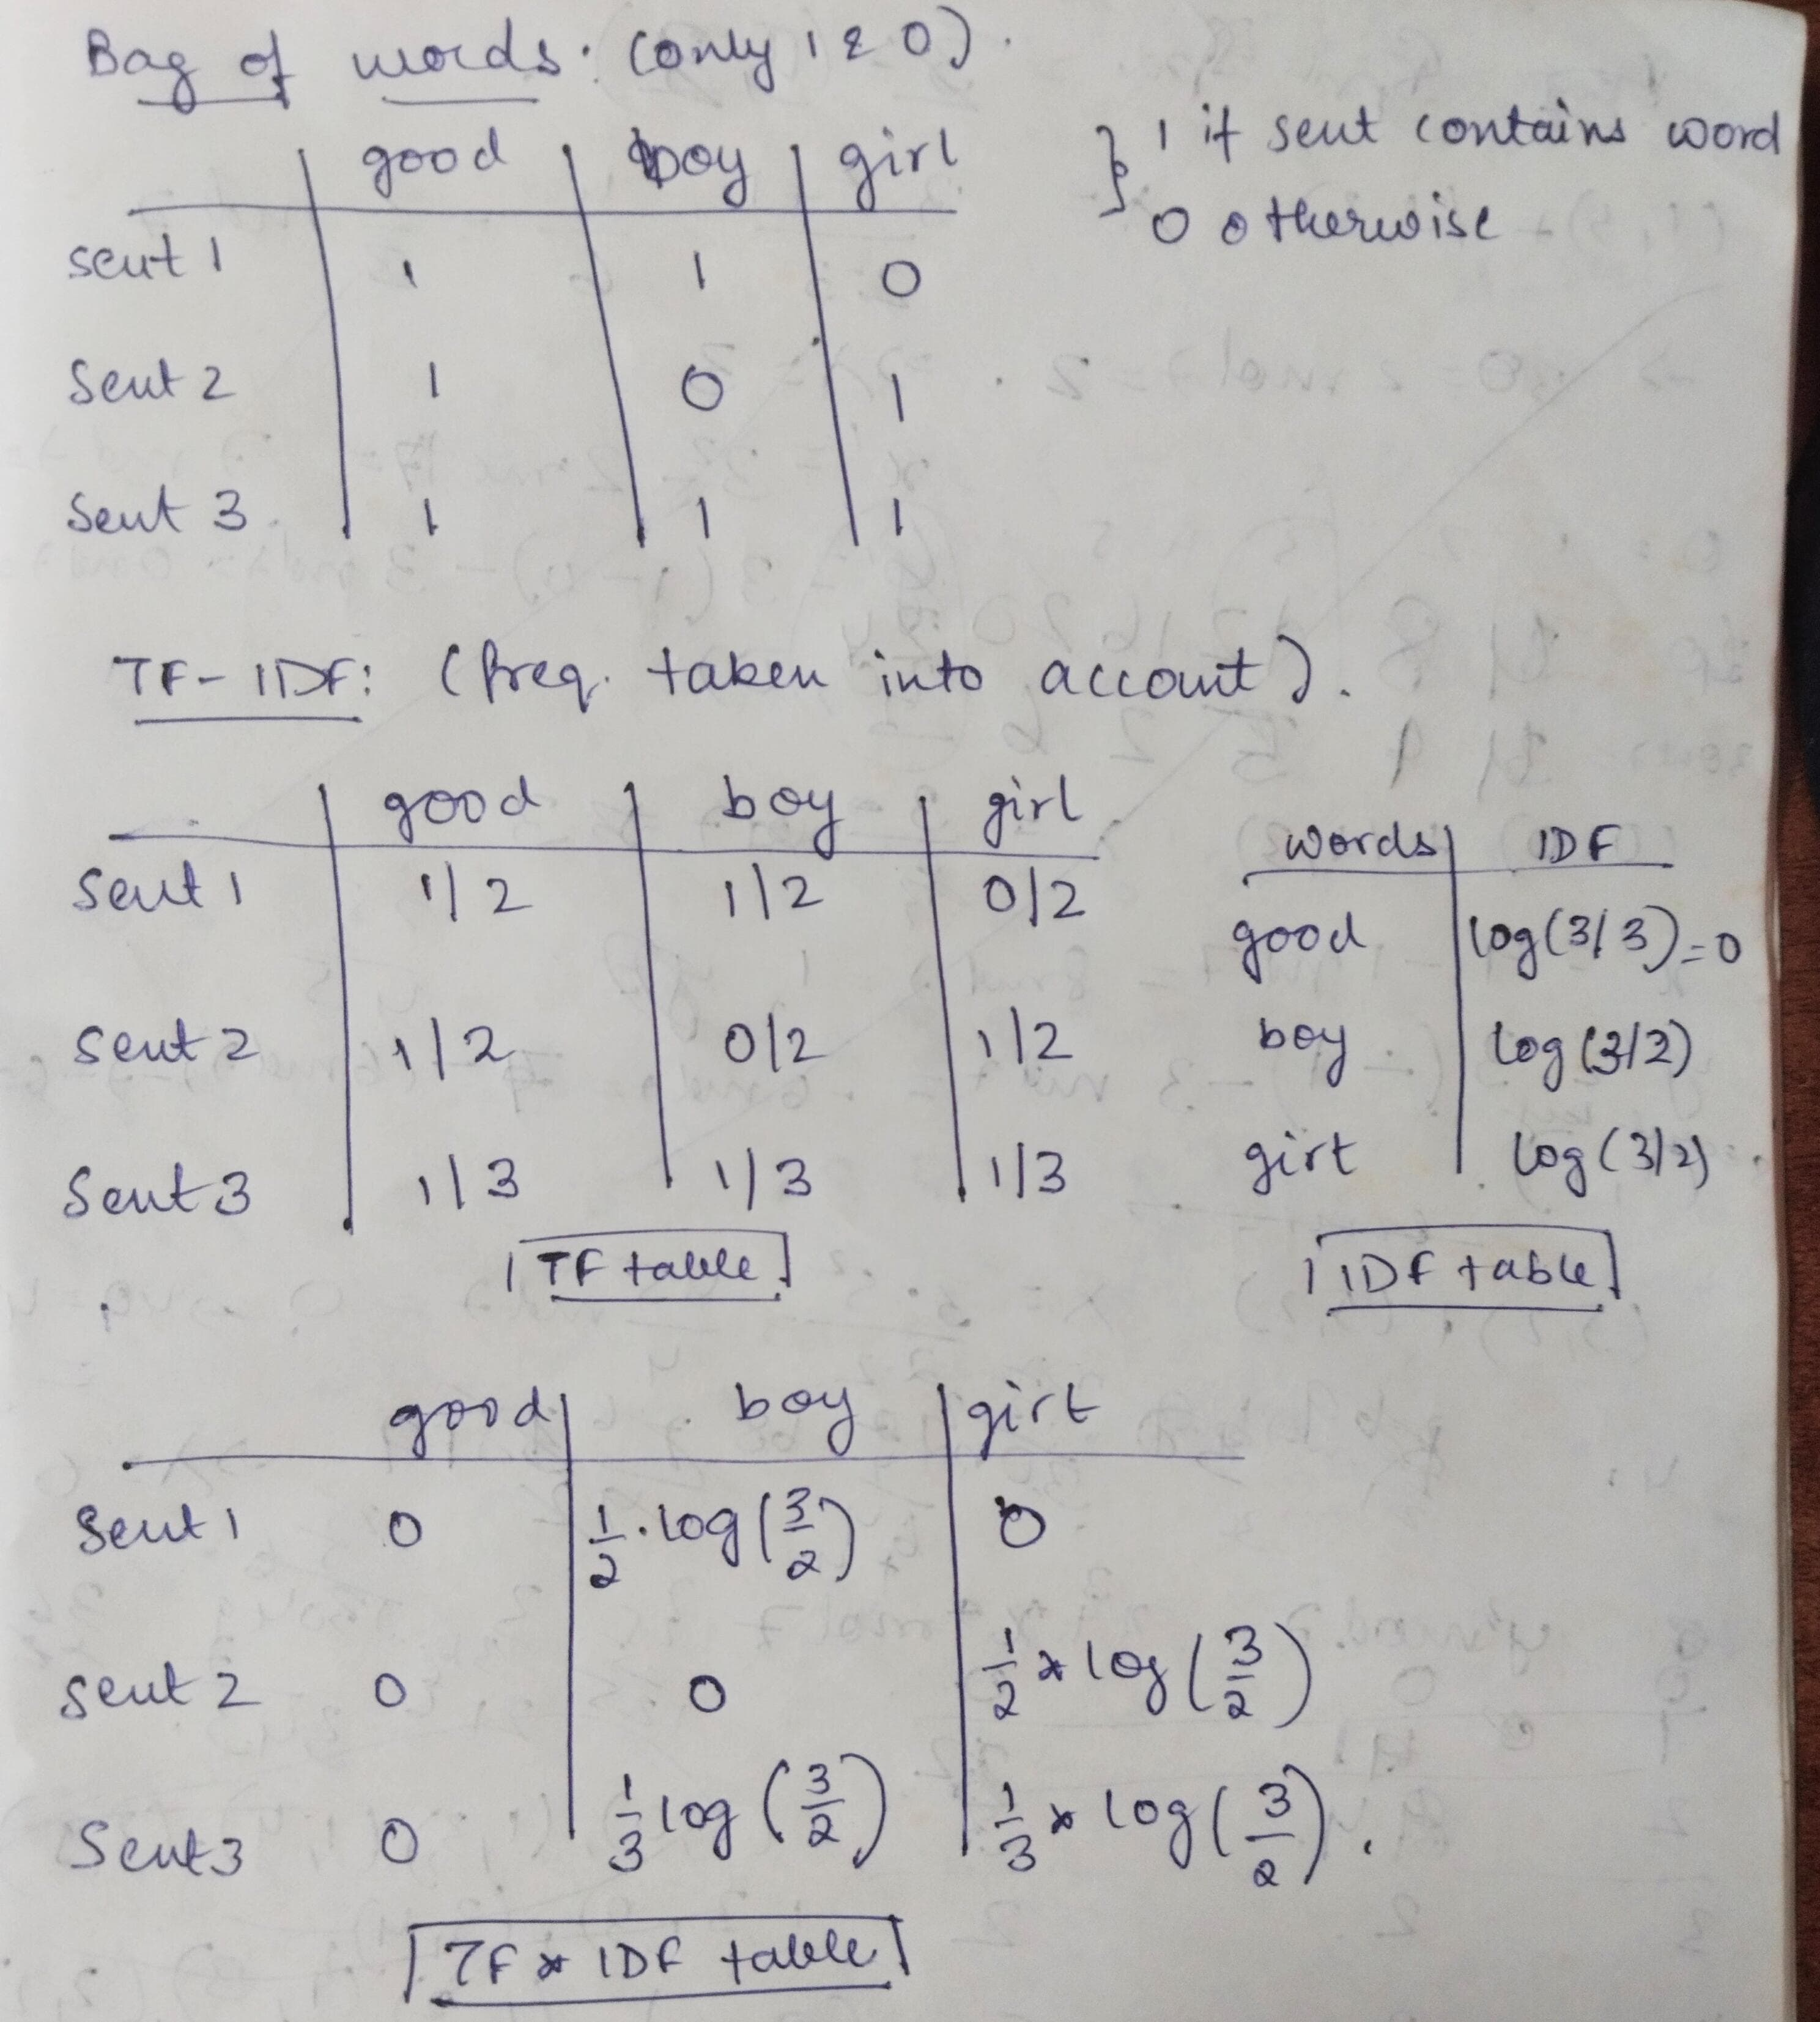 Bag of words: (only 1 & 0).
good boy girl
sent 1 1 1 0
Sent 2 1 0 1
Sent 3 1 1 1
} 1 if sent contains word
0 otherwise
TF-IDF: (freq. taken into account).
good boy girl
Sent 1 1/2 1/2 0/2
Sent 2 1/2 0/2 1/2
Sent 3 1/3 1/3 1/3
TF table
words IDF
good log(3/3)=0
boy log(3/2)
girl log(3/2)
IDF table
good boy girl
Sent 1 0 1/2 · log(3/2) 0
Sent 2 0 0 1/2 * log(3/2)
Sent 3 0 1/3 log(3/2) 1/3 * log(3/2).
TF * IDF table